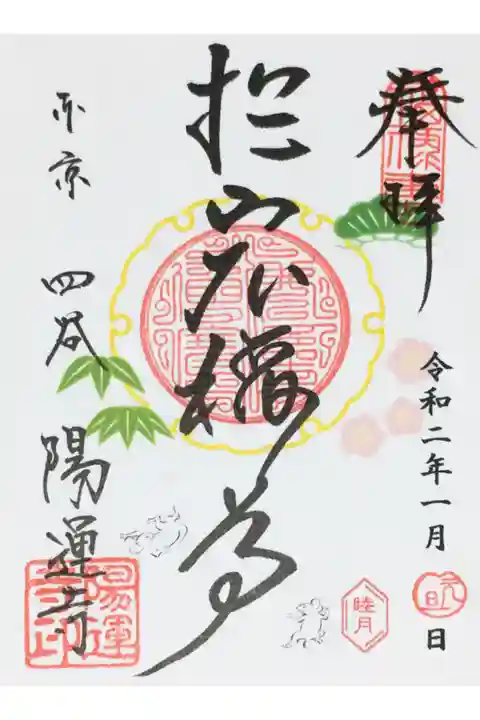 奉拝
令和二年一月元旦日
睦月
於岩
東京 四谷 陽運寺
陽運寺印